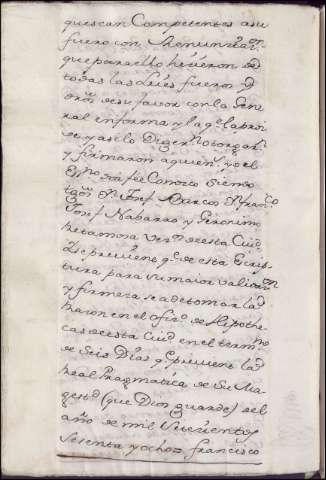 que sean Competentes a su
fuero con Renunciaz.on
que para ello hicieron de
todas las Leies fueros y
dros de su favor con la Gene
ral en forma y la q.e la proi
ve y asi lo Digeron otorgar.n
y firmaron a quien y yo el
Ess.no doi fee Conozco siendo
tgos D.n Josef Marcos D.n Fran.co
Josef Nabarro y Geronimo
Retamosa vez.s de esta Ciud.
Se previene q.e de esta Escrip
tura para su maior validaz.on
y firmeza se a de tomar la
Razon en el ofiz.o de Hipothe
cas de esta Ciud en el termino
de Seis Dias q.e previene la
Real Pragmatica de Su Ma
gestd (que Dios guarde) del
año de mil Setecientos
Sesenta y ocho Francisco